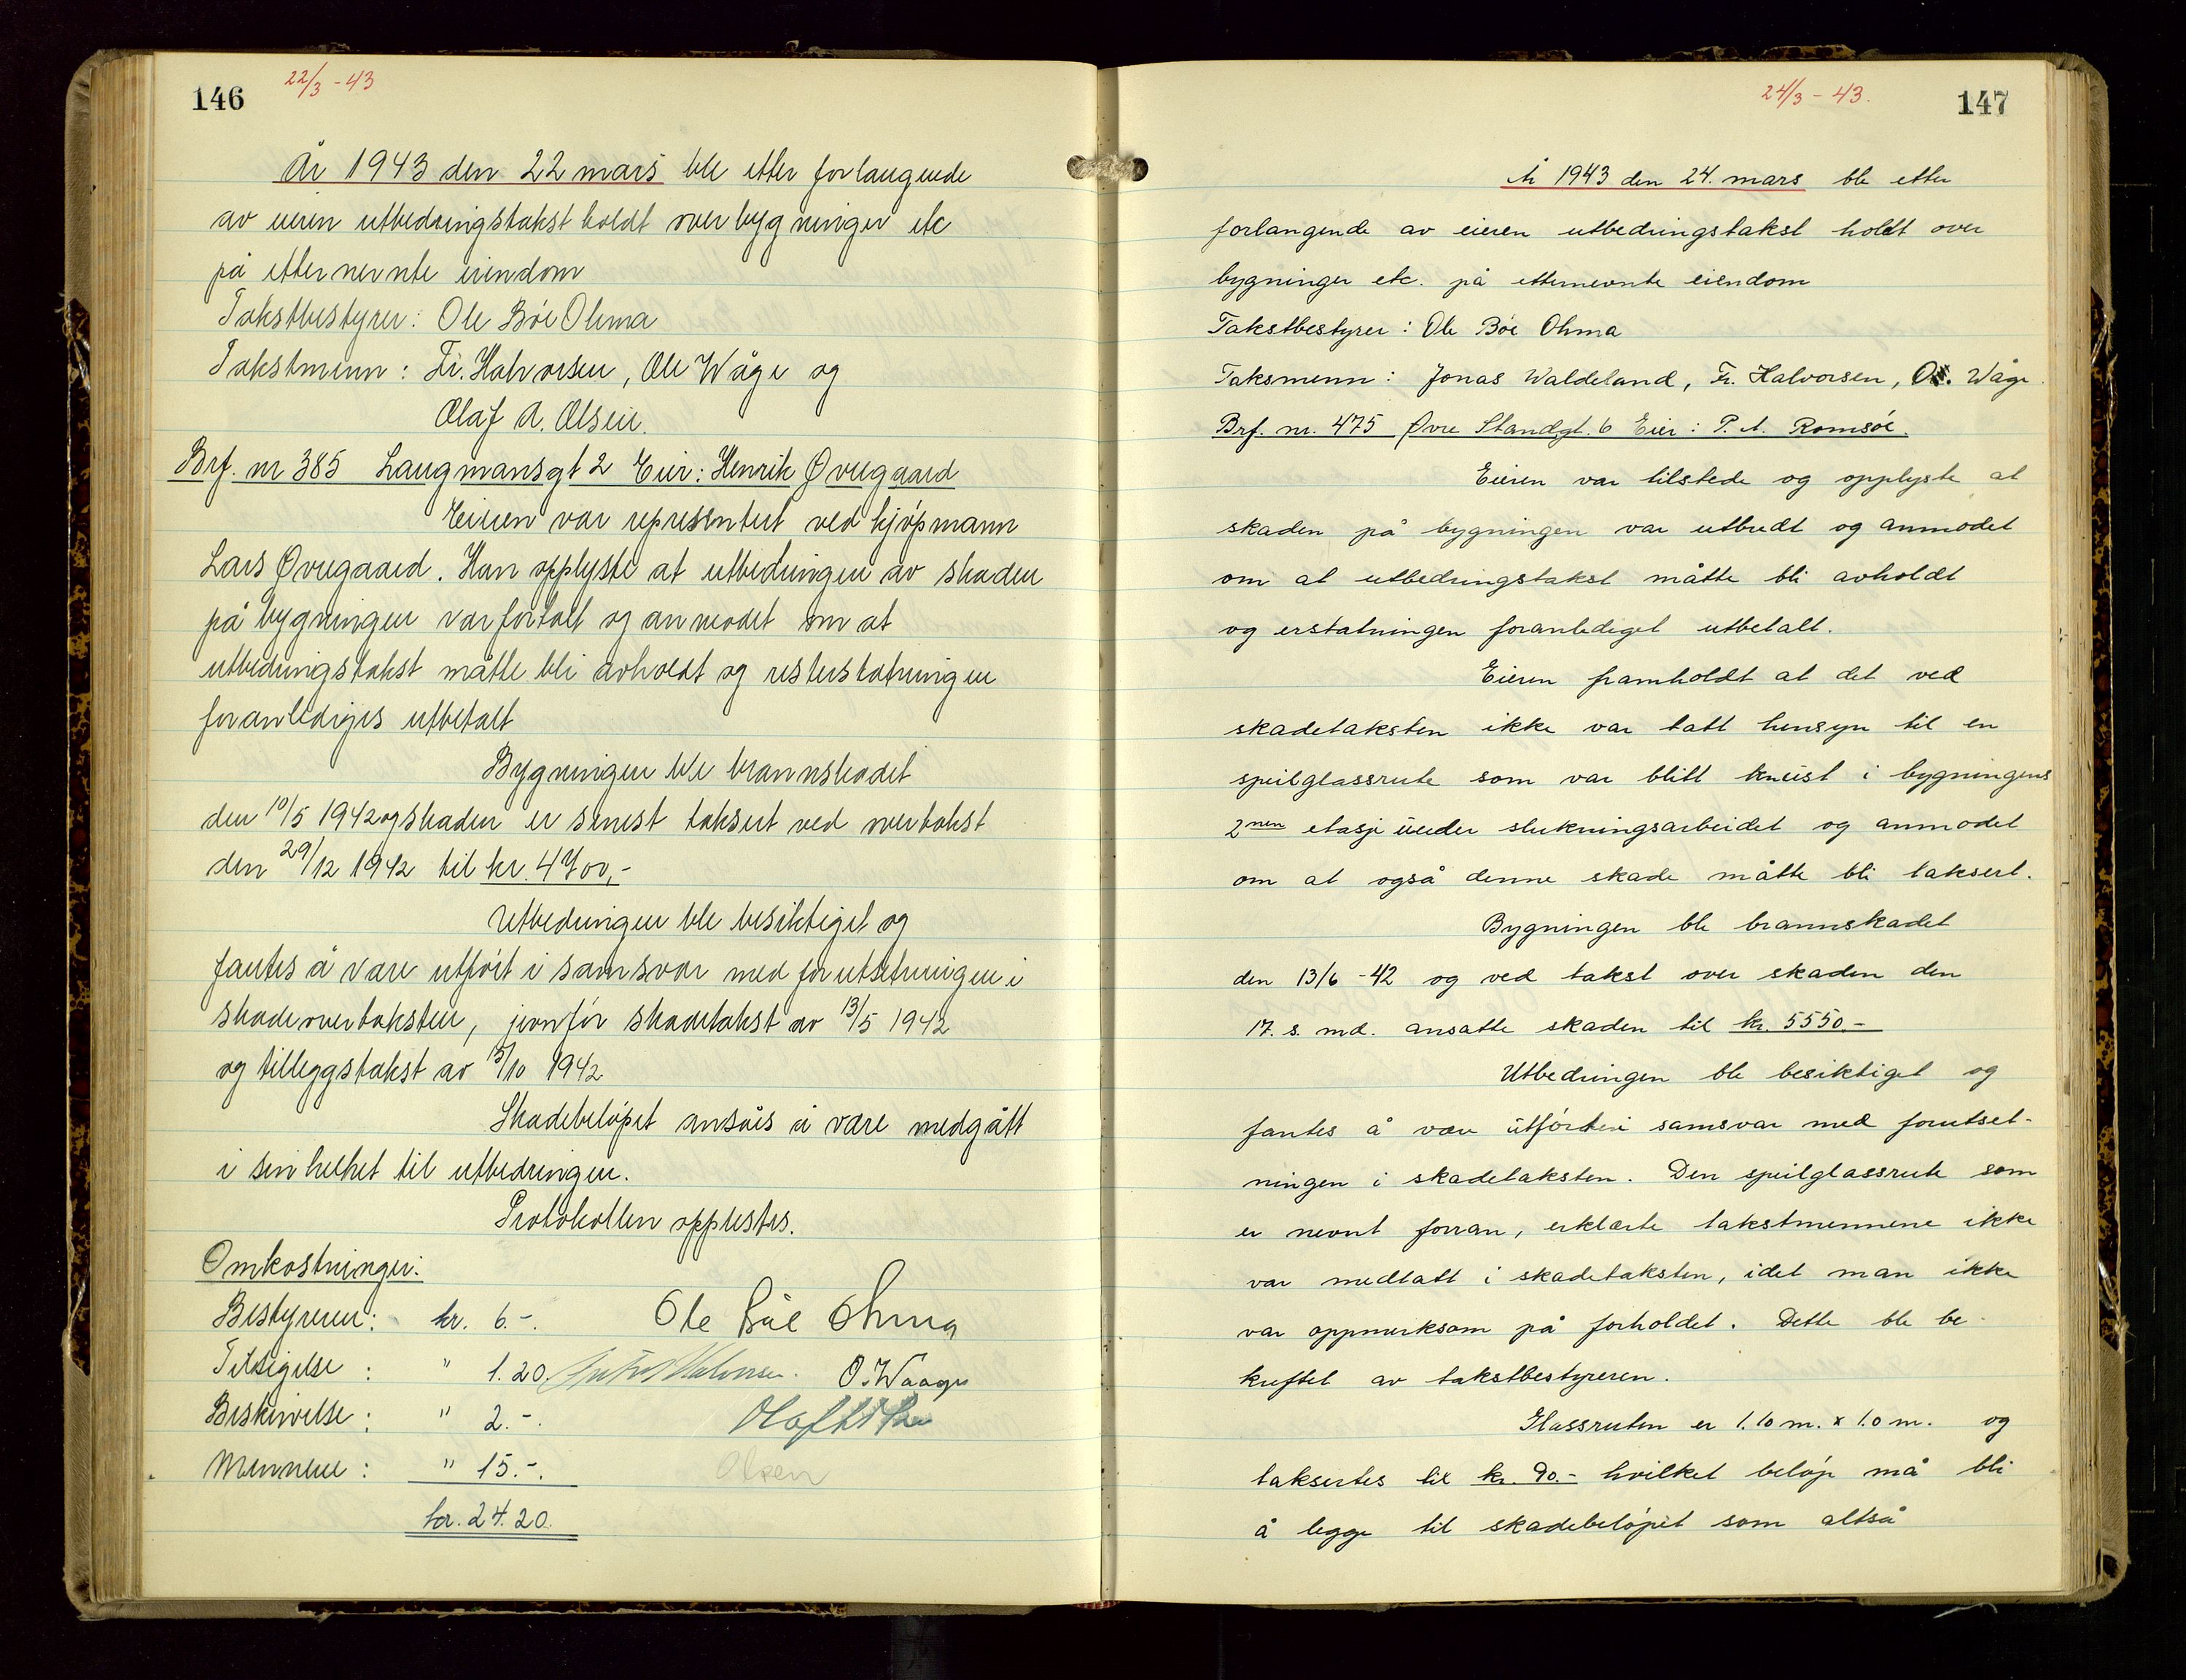 146 22/3-43
År 1943 den 22 mars ble etter forlangende
av eieren utbedringstakst holdt over bygninger etc
på etternevnte eiendom
Takstbestyrer: Ole Bøe Ohma
Takstmenn: Fr. Halvorsen, Ole Wåge og
Olaf A. Olsen.
Brf. nr 385 Laugmansgt 2 Eier: Henrik Øvregaard
Eieren var representert ved kjøpmann
Lars Øvregaard. Han opplyste at utbedringen av skaden
på bygningen var fortalt og anmodet om at
utbedringstakst måtte bli avholdt og resterstatningen
foranlediges utbetalt
Bygningen ble brannskadet
den 10/5 1942 og skaden er senest taksert ved overtakst
den 29/12 1942 til kr. 4700,-
Utbedringen ble besiktiget og
fantes å være utført i samsvar med forutsetningen i
skadeovertaksten, jevnfør skadetakst av 13/5 1942
og tilleggstakst av 15/10 1942
Skadebeløpet ansåes å være medgått
i sin helhet til utbedringen.
Protokollen opplestes.
Omkostninger:
Bestyreren: kr. 6.-. Ole Bøe Ohma
Tilsigelse : " 1.20. Halvorsen. O. Waage
Beskrivelse : " 2.-. Olaf
Mennene : " 15.-. Olsen
kr. 24.20.
24/3-43. 147
År 1943 den 24. mars ble etter
forlangende av eieren utbedringstakst holdt over
bygninger etc. på etternevnte eiendom
Takstbestyrer : Ole Bøe Ohma
Taksmenn : Jonas Waldeland, Fr. Halvorsen, O. Våge.
Brf. nr. 475 Øvre Standgt. 6 Eier : P. A. Romsøe.
Eieren var tilstede og opplyste at
skaden på bygningen var utbedt og anmodet
om at utbedringstakst måtte bli avholdt
og erstatningen foranlediget utbetalt.
Eieren framholdt at det ved
skadetaksten ikke var tatt hensyn til en
speilglassrute som var blitt kneist i bygningens
2nen etasje under slukningsarbeidet og anmodet
om at også denne skade måtte bli taksert.
Bygningen ble brannskadet
den 13/6 -42 og ved takst over skaden den
17. s. md. ansatte skaden til kr. 5550.-
Utbedringen ble besiktiget og
fantes å være utført i samsvar med forutset-
ningen i skadetaksten. Den speilglassrute som
er nevnt forran, erklærte takstmennene ikke
var medtatt i skadetaksten, idet man ikke
var oppmerksom på forholdet. Dette ble be-
kreftet av takstbestyreren.
Glassruten er 1.10 m. x 1.0 m. og
taksertes til kr. 90.- hvilket beløp må bli
å legge til skadebeløpet som altså